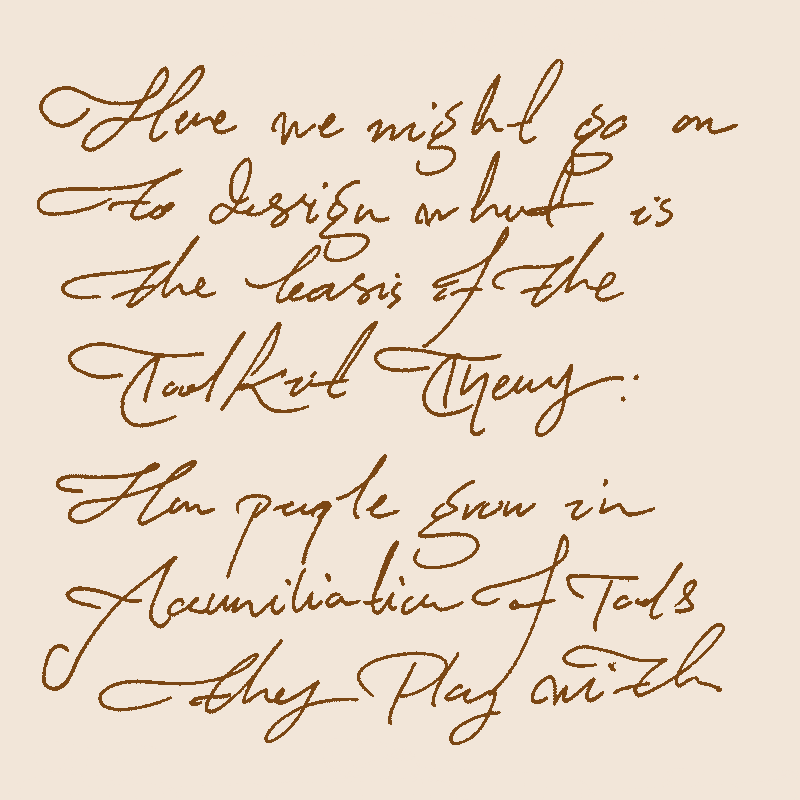 Here we might go on
to design what is
the basis of the
Toolkit Theory:
How people grow in
familiarization of Tools
they Play with